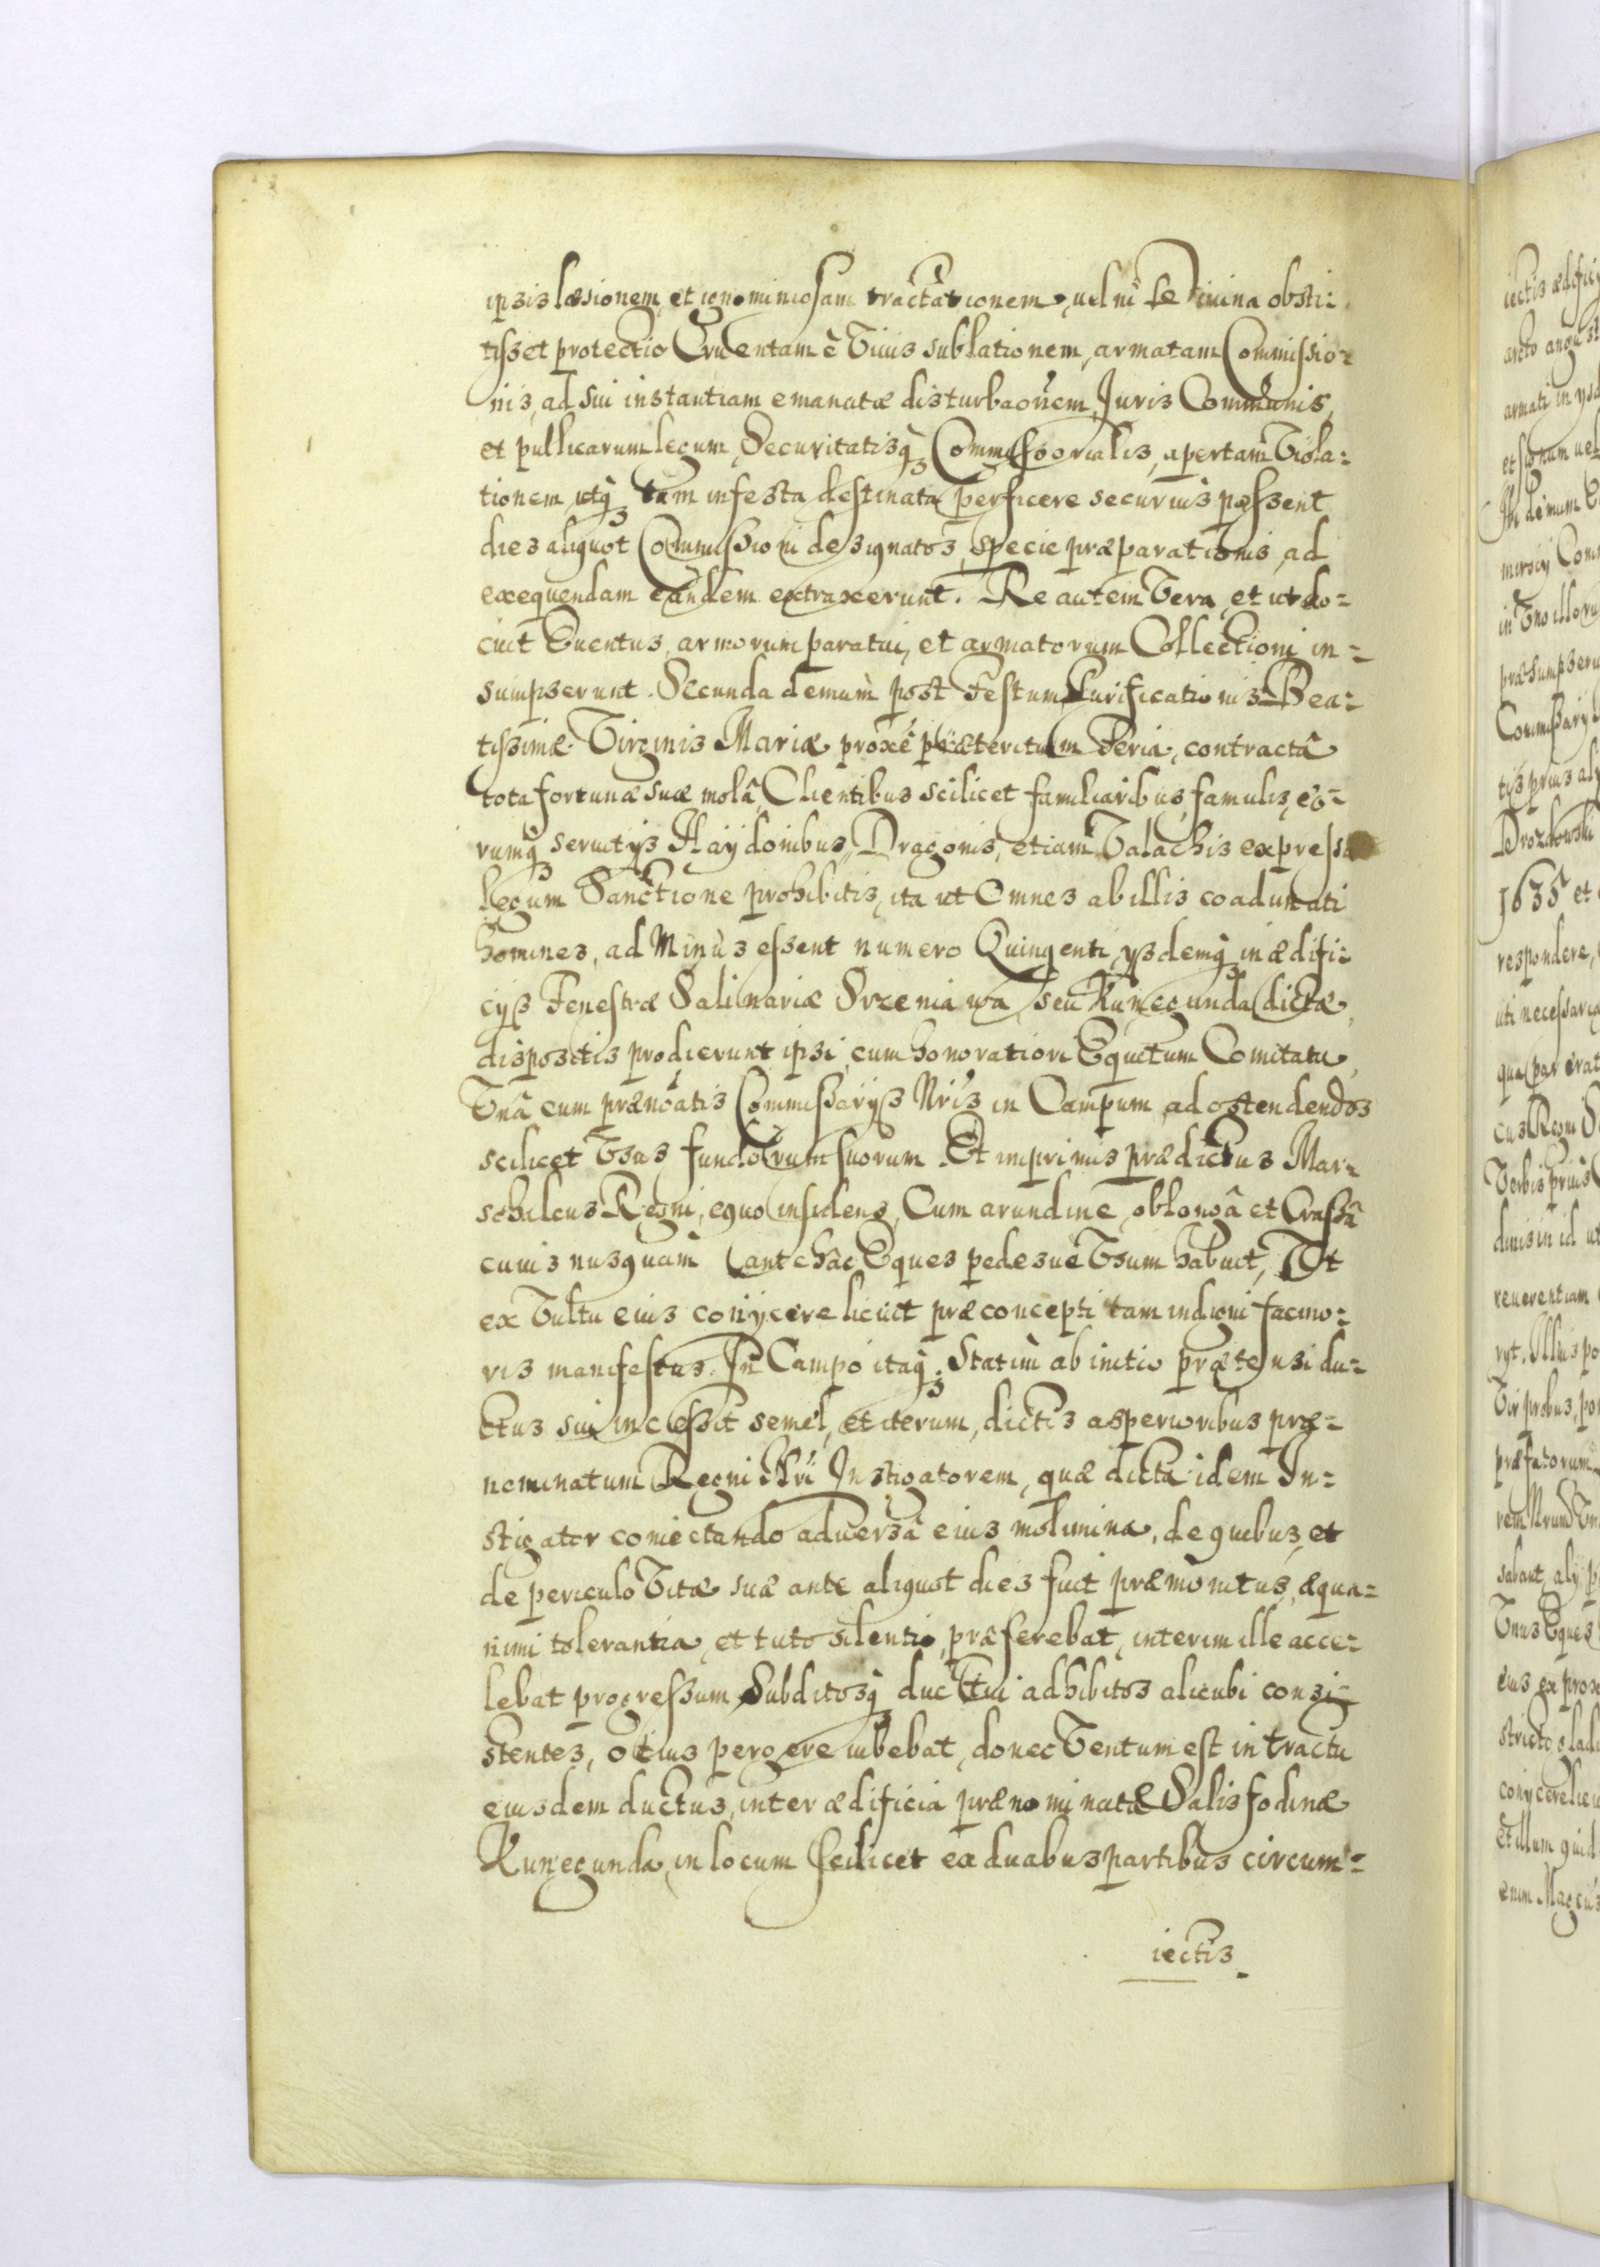 ipsis læsionem, et ignominiosam tractationem, uel ni se Diuina obsti=
tisset protectio Cruentam è Viuis sublationem, armatam Commissio=
nis, ad sui instantiam emanatæ disturbaōnem, Juris Communis,
et publicarum legum, Securitatisq̃ Commissorialis, apertam Viola=
tionem utq̃ tam infesta destinata perficere securius possent
dies aliquot Commissioni designatos, specie præparationis, ad
exequendam eandem extraxerunt. Re autem Vera, et ut do=
cuit Euentus, armorum paratui, et armatorum Collectioni in=
sumpserunt. Secunda demum post Festum Purificationis Bea=
tissimæ Virginis Mariæ proxè præteritum Feria, contractâ
tota fortunæ suæ molâ, Clientibus scilicet familiaribus, famulis, eo=
rumq̃ seruitijs Haÿdonibus, Dragonis, etiam Valachis expressa
legum Sanctione prohibitis, ita ut Omnes ab illis coadunati
homines, ad Minùs essent numero Quingenti, ysdemq̃ in ædifi=
cijs Fenestræ Salinariæ Srzeniawa, seu Kunegunda dictæ,
dispositis prodierunt ipsi, cum honoratiori Equitum Comitatu,
Vnâ cum prænōatis Commissarijs Nrīs in Campum, ad ostendendos
scilicet Vsus fundorum suorum. Et imprimis prædictus Mar=
schalcus Regni, equo insidens, Cum arundine, oblongâ et Crassâ
cuius nusquam antehâc Eques pedesue Vsum habuit, Vt
ex Vultu eius conijcere licuit præconcepti tam indigni facino=
ris manifestus. In Campo itaq̃ Statim ab initio prætensi du=
ctus sui incessit semel, et iterum, dictis asperioribus præ=
nominatum Regni Nrī Instigatorem, quæ dicta idem In=
stigator coniectando aduersâ eius molimina, de quibus, et
de periculo Vitæ suæ ante aliquot dies fuit præmonitus, æqua=
nimi tolerantia, et tuto silentio, præferebat, interim ille acce=
lebat progressum Subditosq̃ ductui adhibitos alicubi consi=
stentes, otius pergere iubebat, donec Ventum est in tractu
eiusdem ductus, inter ædificia prænominatæ Salisfodinæ
Kunegunda, in locum scilicet ex duabus partibus circum=
iectis
iectis ædificij
armati in ysd
et signum uel
in Vno illoru
præsumpseru
tis prius aly
Drozdowski
1635 et
respondere,
uti necessaria
qua par erat
Verbis prius
dinis in id ut
reuerentiam
Vir probus, po
præfatorum
Vnus Eques
eius ex prox
stricto gladi
conijcere licu
et illum quid
enim Magcus